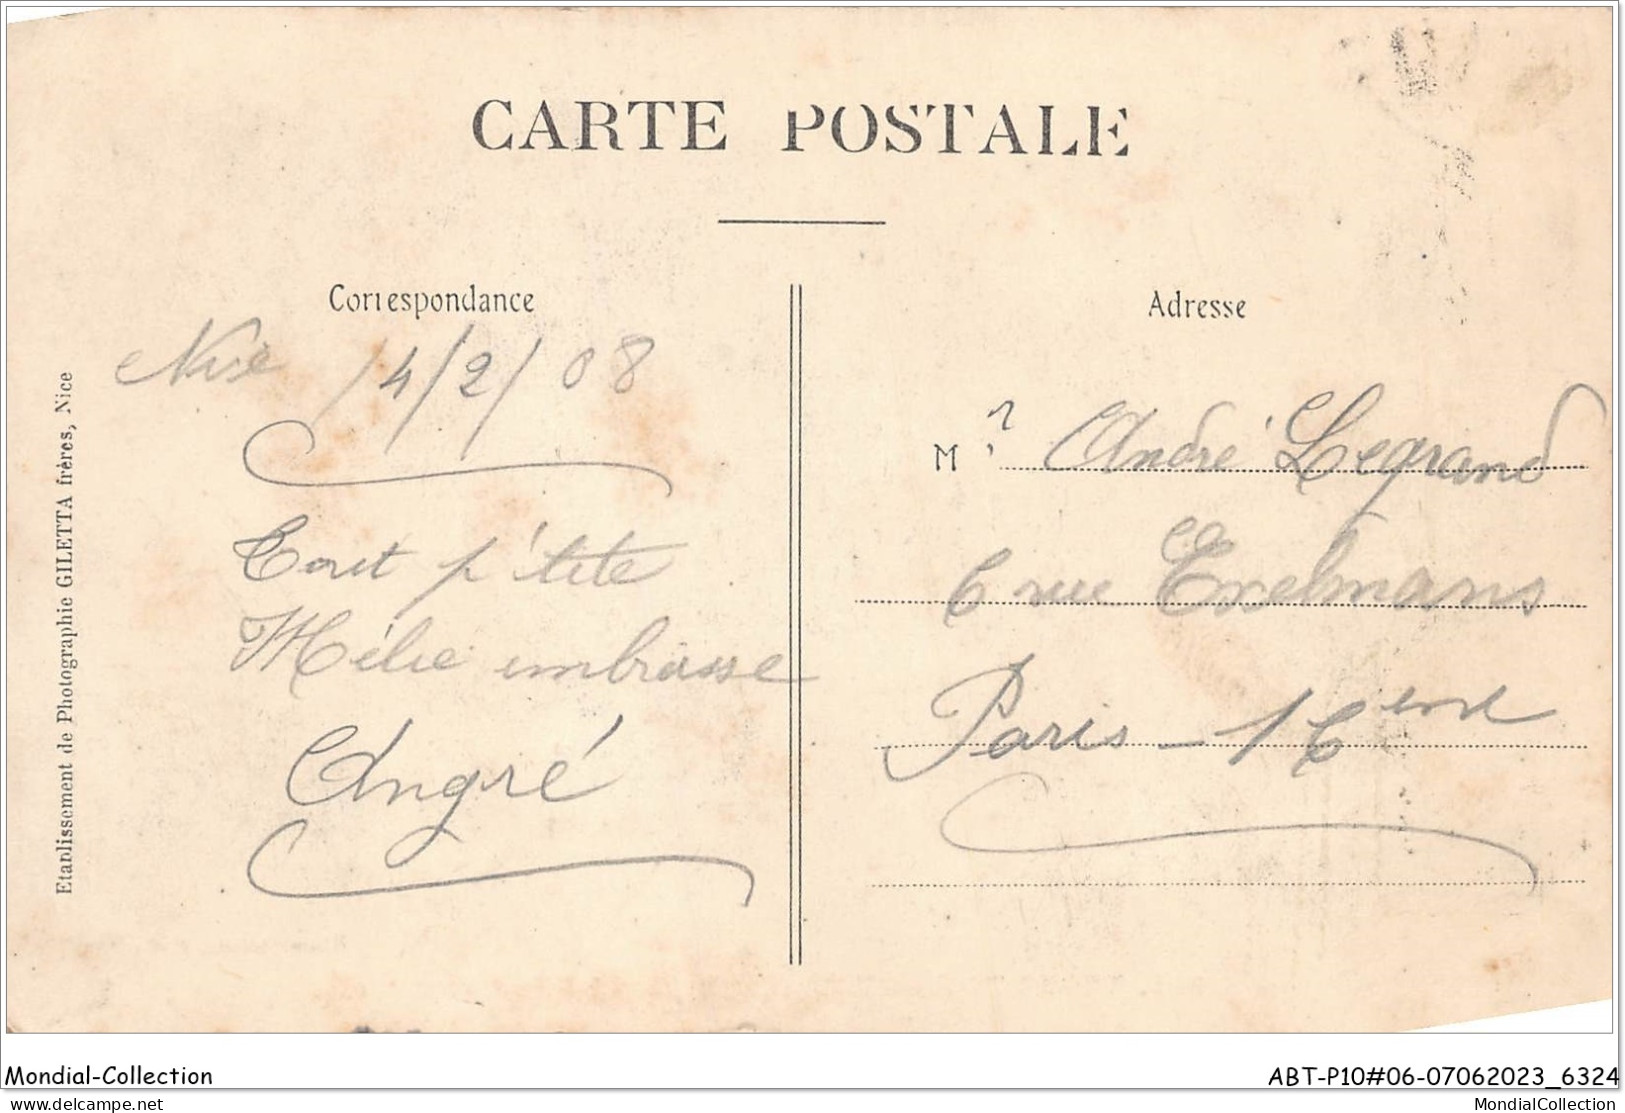 CARTE POSTALE
Correspondance
Adresse
Nice 14/2/08
Tout p'tite
Mélie embrasse
Angré
M.r André Legrand
6 rue Exelmans
Paris - 16ème
Etablissement de Photographie GILETTA frères, Nice
Mondial-Collection
ABT-P10#06-07062023_6324
www.delcampe.net
MondialCollection